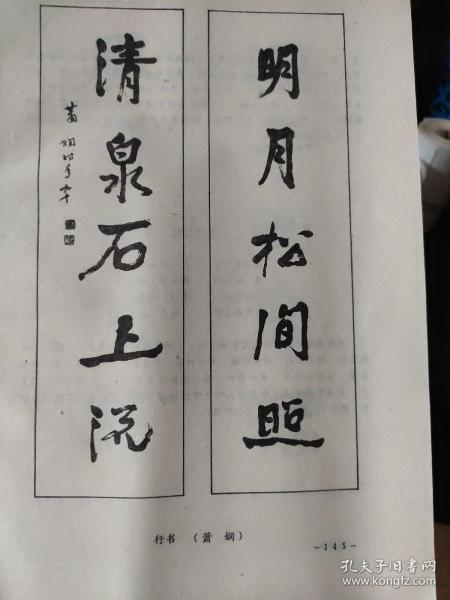 明月松间照
清泉石上流
萧娴时年
行书 （萧 娴）
-145-
孔夫子旧书网
www.kongfz.com